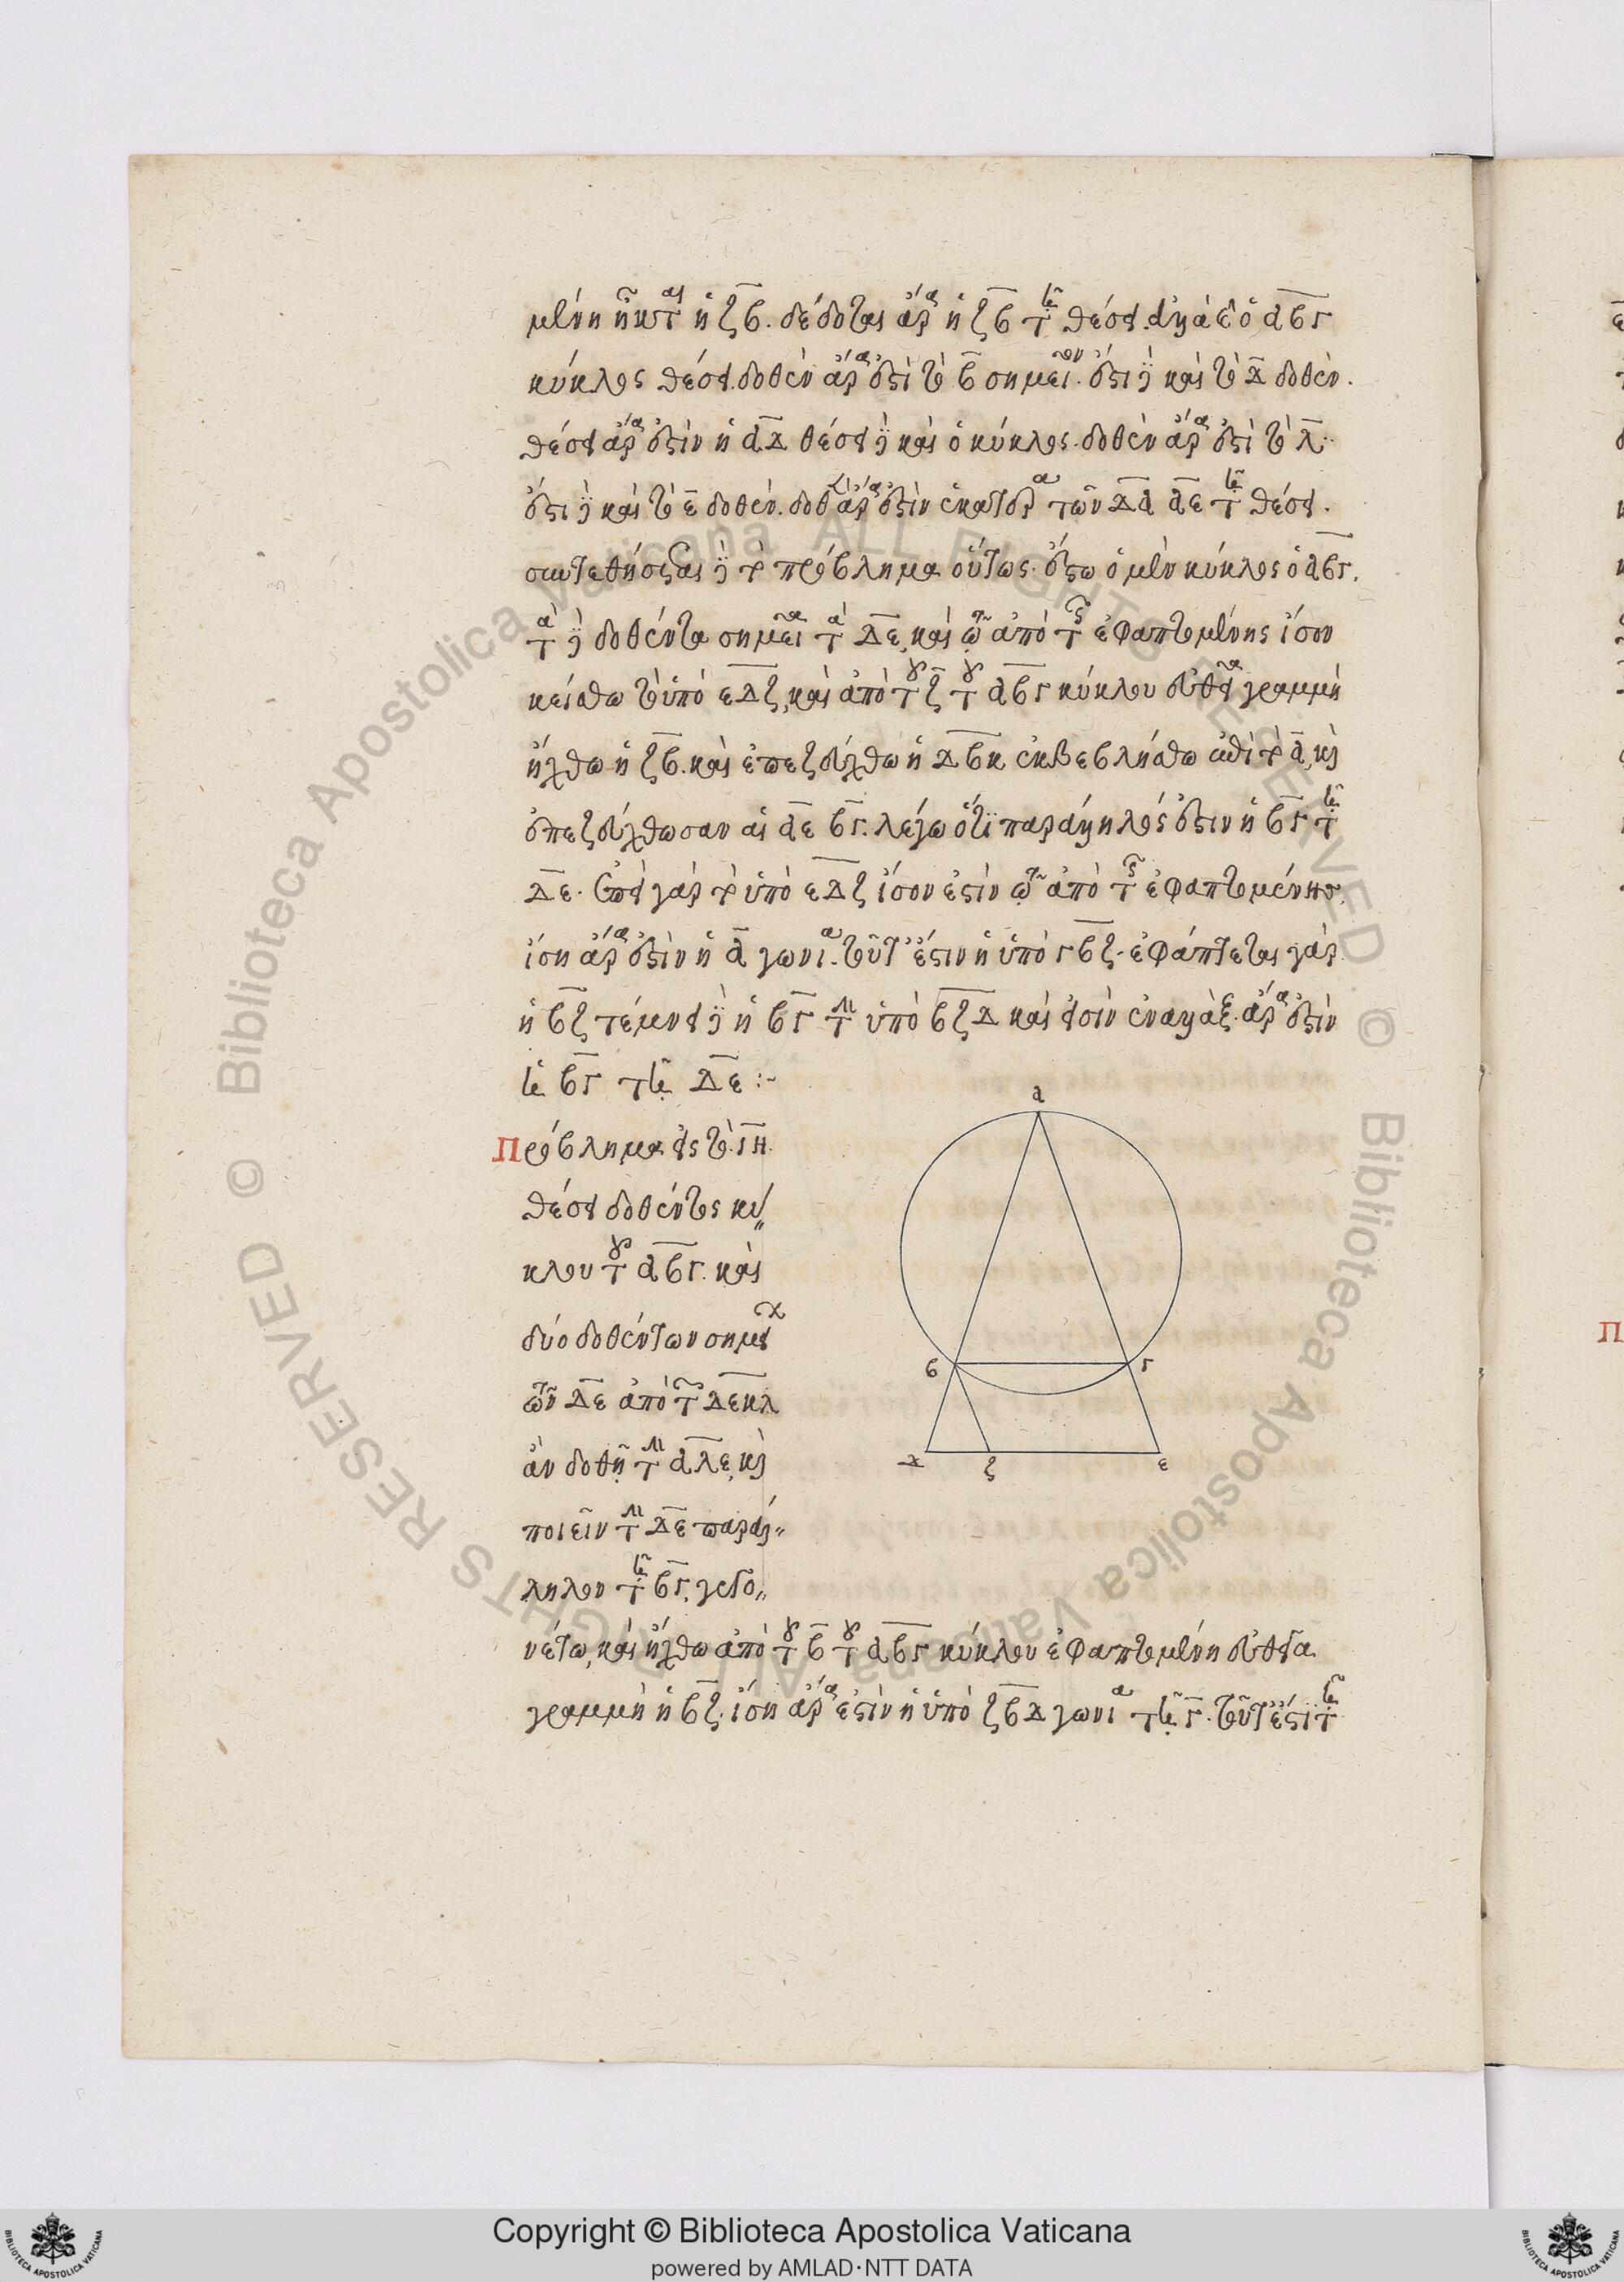 μένη ἦκται ἡ ζβ. δέδοται ἄρα ἡ ζβ τῇ θέσει. ἀλλὰ κ ὁ αβγ
κύκλος θέσει. δοθὲν ἄρα ἐστὶ τὸ β σημεῖον. ἔστι δὲ καὶ τὸ δ δοθέν.
θέσει ἄρα ἐστὶν ἡ αδ θέσει δὲ καὶ ὁ κύκλος. δοθὲν ἄρα ἐστὶ τὸ λ.
ἔστι δὲ καὶ τὸ ε δοθέν. δοθεῖ ἄρα ἐστὶν ἑκατέρα τῶν δα αε τῇ θέσει.
συντεθήσεται δὲ τὸ πρόβλημα οὕτως. ἔστω ὁ μὲν κύκλος ὁ αβγ.
τὰ δὲ δοθέντα σημεῖα τὰ δε, καὶ τῷ ἀπὸ τῆς ἐφαπτομένης ἴσον
κείσθω τὸ ὑπὸ εδζ, καὶ ἀπὸ τοῦ ζ τοῦ αβγ κύκλου εὐθεῖα γραμμὴ
ἤχθω ἡ ζβ. καὶ ἐπεζεύχθω ἡ δβ κ ἐκβεβλήσθω ἐπὶ τὸ α, κὶ
ἐπεζεύχθωσαν αἱ αε βγ. λέγω ὅτι παράλληλός ἐστιν ἡ βγ τῇ
δε. ἐπεὶ γὰρ τὸ ὑπὸ εδζ ἴσον ἐστὶν τῷ ἀπὸ τῆς ἐφαπτομένης,
ἴση ἄρα ἐστὶν ἡ α γωνία. τοῦτ' ἔστιν ἡ ὑπὸ γβζ. ἐφάπτεται γὰρ
ἡ βζ τέμνει δὲ ἡ βγ τὴν ὑπὸ βζδ καὶ εἰσὶν ἐναλλὰξ. ἄρα ἐστὶν
ἡ βγ τῇ δε :~
Πρόβλημα εἰς τὸ ιη.
θέσει δοθέντος κύ
κλου τοῦ αβγ. καὶ
δύο δοθέντων σημεί
ων δε ἀπὸ τῆς δε κλ
ἂν δοθῇ τὴν αλε, κὶ
ποιεῖν τὴν δε παράλ
ληλον τῇ βγ, γεγο
νέτω, καὶ ἤχθω ἀπὸ τοῦ β τοῦ αβγ κύκλου ἐφαπτομένη εὐθεῖα
γραμμὴ ἡ βζ. ἴση ἄρα ἐστὶν ἡ ὑπὸ ζβδ γωνία τῇ γ. τοῦτ' ἔστι τῇ
α
β
γ
δ
ζ
ε
Copyright © Biblioteca Apostolica Vaticana
powered by AMLAD·NTT DATA